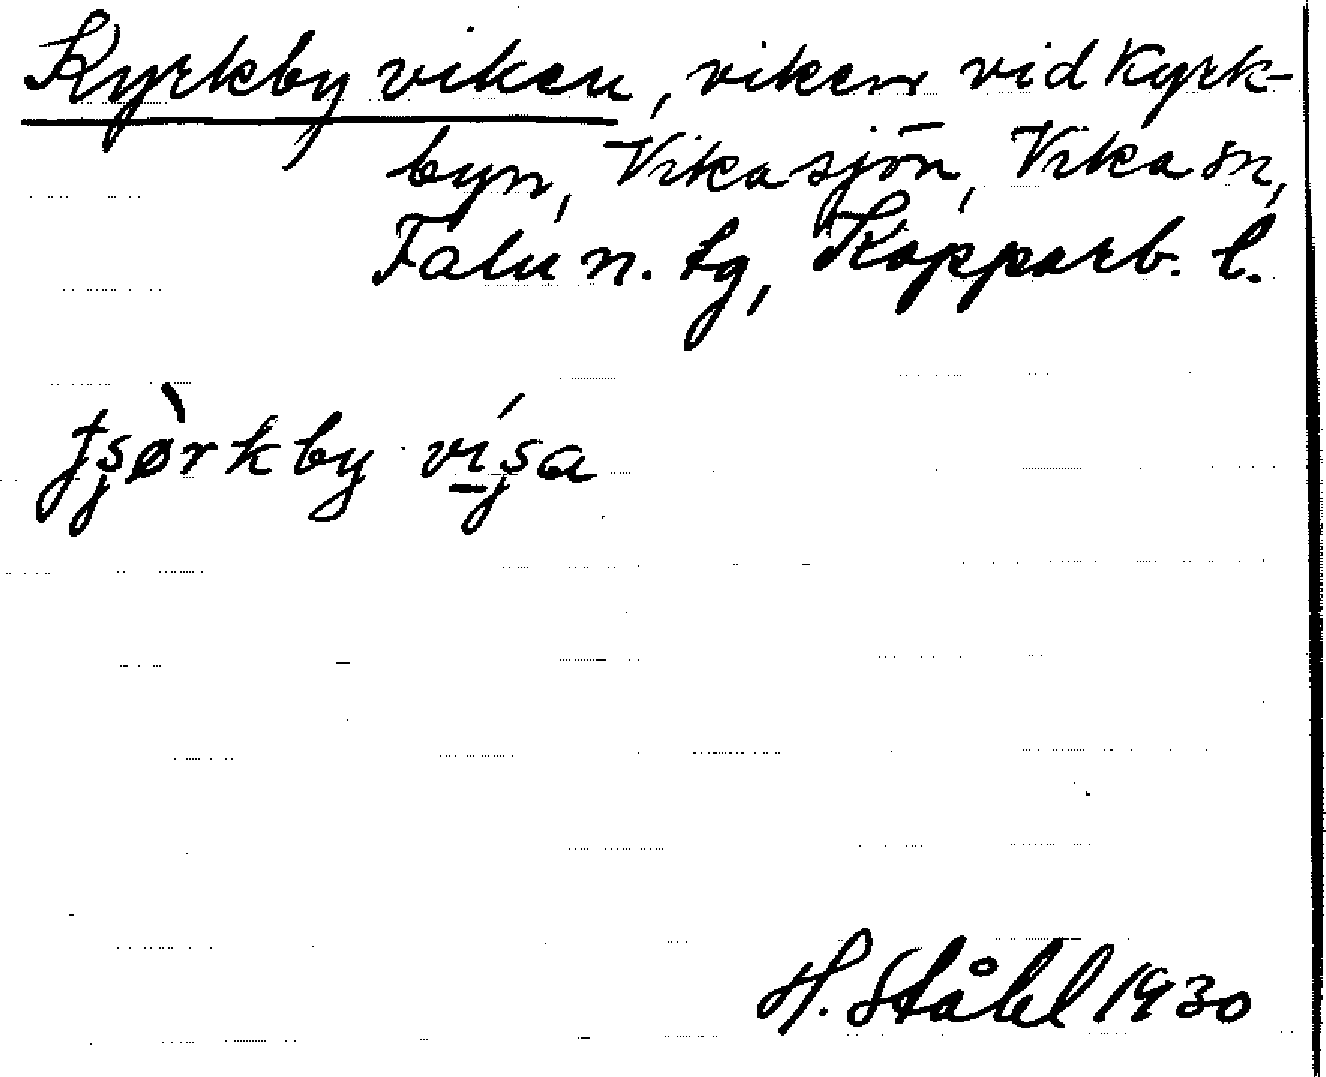 Kyrkbyviken, viken vid Kyrk-
byn, Vikasjön, Vika sn,
Falu n. tg, Kopparb. l.
tʂø̀rkby vi̱ʂa
H. Ståhl 1930